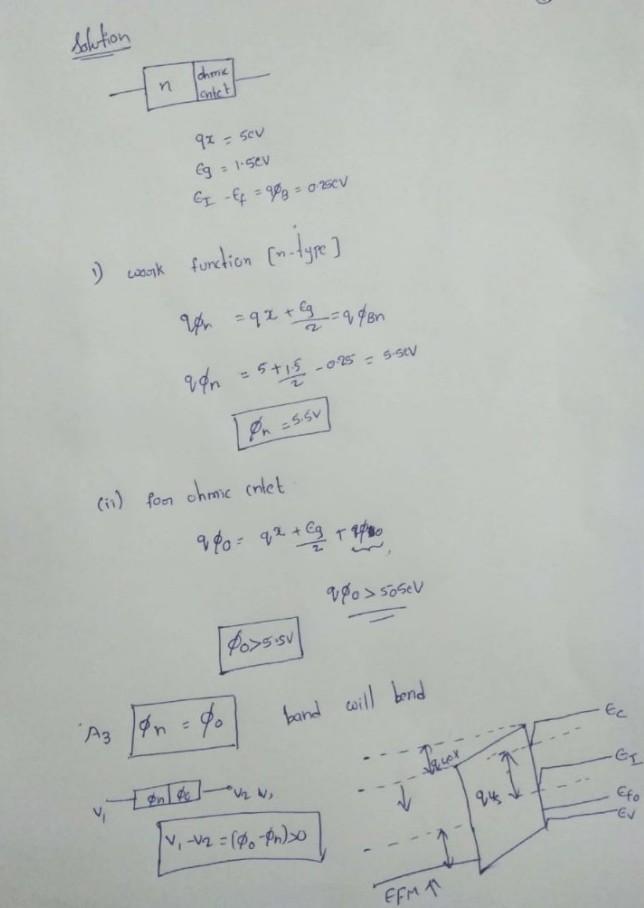 Solution
n
ohmic
cntct
qx = 5eV
Eg = 1.5eV
EI - Ef = qϕB = 0.25eV
i) work function [n-type]
qϕn = qx + Eg/2 = qϕBn
qϕn = 5 + 1.5/2 - 0.25 = 5.5eV
ϕn = 5.5V
(ii) foor ohmic cntct
qϕ0 = qx + Eg/2 +
qϕ0 > 505eV
ϕ0 > 5.5V
A3 ϕn = ϕ0 band will bend
V1 ϕn V2
V1 - V2 = (ϕ0 - ϕn) > 0
Ec
EI
Efo
Ev
EFM